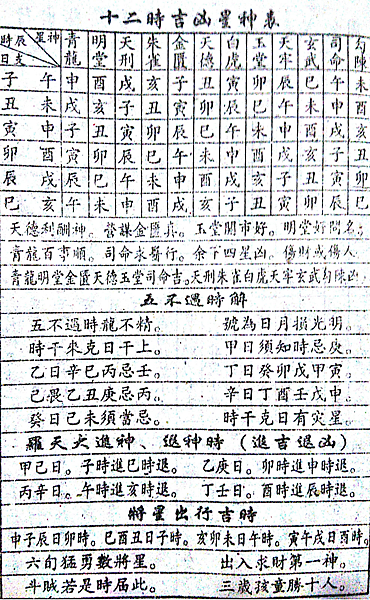 十二時吉凶星神表
時辰 星神 日支 青龍 明堂 天刑 朱雀 金匱 天德 白虎 玉堂 天牢 玄武 司命 勾陳
子 午 申 酉 戌 亥 子 丑 寅 卯 辰 巳 午 未
丑 未 戌 亥 子 丑 寅 卯 辰 巳 午 未 申 酉
寅 申 子 丑 寅 卯 辰 巳 午 未 申 酉 戌 亥
卯 酉 寅 卯 辰 巳 午 未 申 酉 戌 亥 子 丑
辰 戌 辰 巳 午 未 申 酉 戌 亥 子 丑 寅 卯
巳 亥 午 未 申 酉 戌 亥 子 丑 寅 卯 辰 巳
天德利酬神。營謀金匱真。玉堂開市好。明堂好問名；
青龍百事順。司命求醫行。余下四星凶。傷財或傷人。
青龍明堂金匱天德玉堂司命吉。天刑朱雀白虎天牢玄武勾陳凶
五不遇時解
五不遇時龍不精。 號為日月損光明。
時干來克日干上。 甲日須知時忌庚。
乙日辛巳丙忌壬。 丁日癸卯戊甲寅。
己畏乙丑庚忌丙。 辛日丁酉壬戊申。
癸日己未須當忌。 時干克日有灾星。
羅天大進神、退神時（進吉退凶）
甲己日。子時進巳時退。 乙庚日。卯時進申時退。
丙辛日。午時進亥時退。 丁壬日。酉時進辰時退。
將星出行吉時
申子辰日卯時。巳酉丑日子時。亥卯未日午時。寅午戌日酉時。
六旬猛勇數將星。 出入求財第一神。
斗賊若是時屆此。 三歲孩童勝十人。